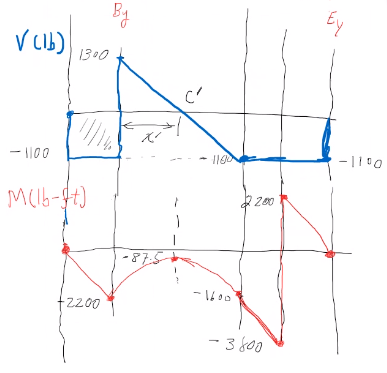 By
Ey
V(lb)
1300
C'
x'
-1100
-1100
-1100
M(lb-ft)
2200
-87.5
-2200
-1600
-3800